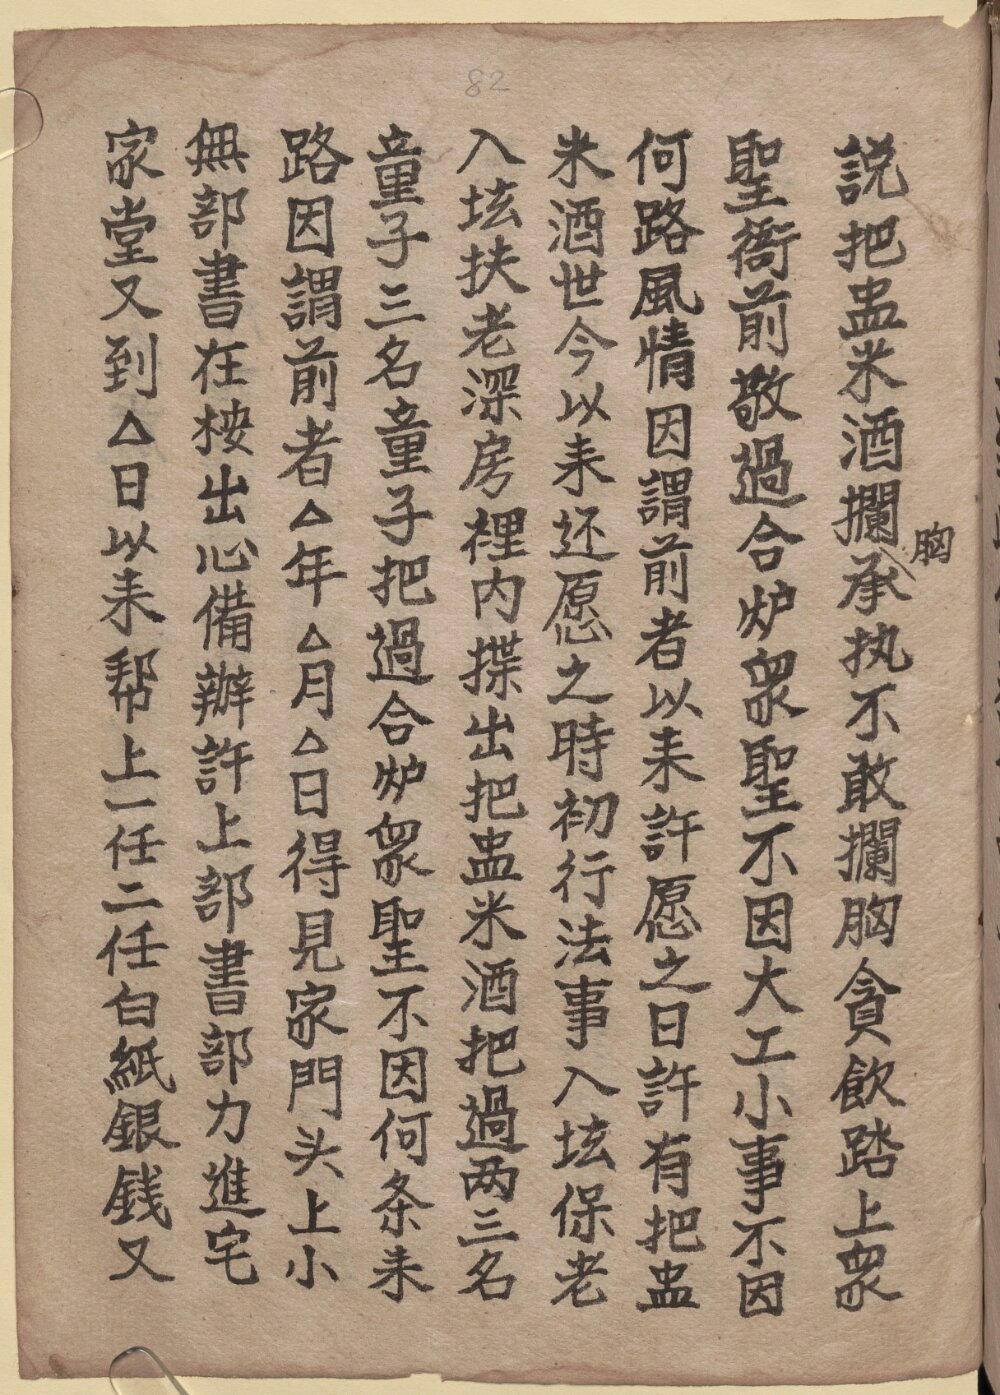 82
説把盅米酒攔承执不敢攔胸貪飲踏上眾
胸
聖衙前敬過合炉眾聖不因大工小事不因
何路風情因謂前者以耒許愿之日許有把盅
米酒世今以耒还愿之時初行法事入坛保老
入坛扶老深房裡内揲出把盅米酒把過两三名
童子三名童子把過合炉眾聖不因何条耒
路因謂前者△年△月△日得見家門头上小
無部書在桉出心備辦許上部書部力進宅
家堂又到△日以耒帮上一任二任白紙銀銭又